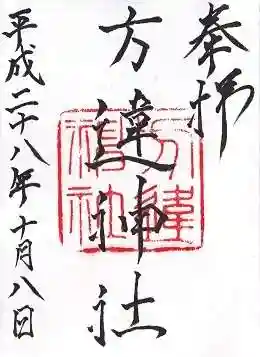 奉拝
方違神社
方違神社
平成二十八年十月八日